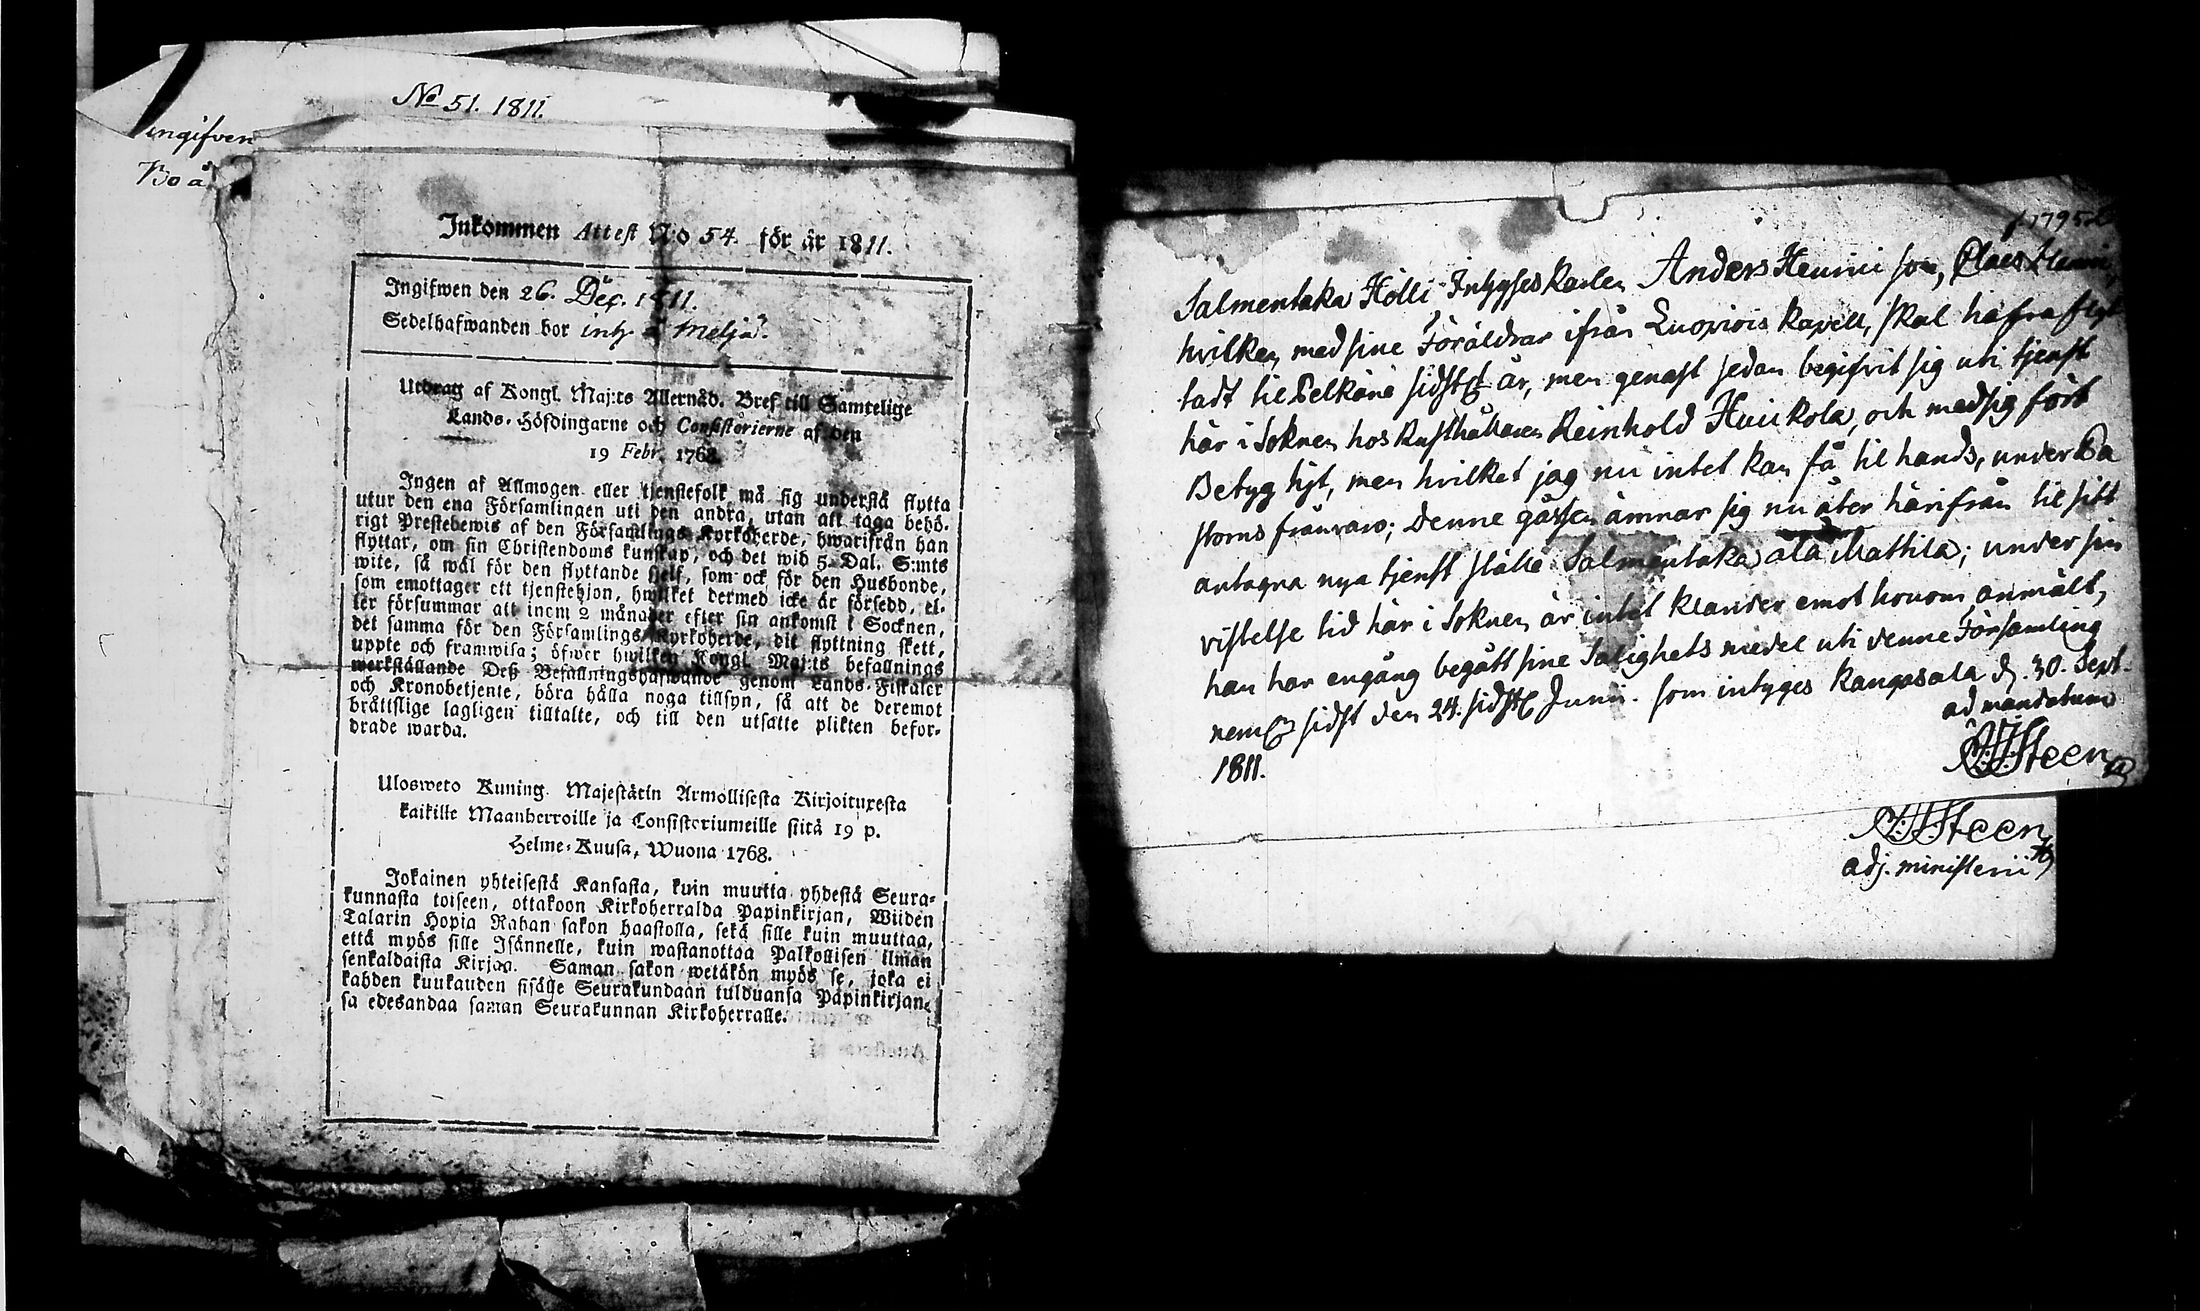 No 51. 1811.
ingifven
Bo å
Inkommen Attest N:o 54. för år 1811.
Ingifwen den 26. Dec. 1811.
Sedelhafwanden bor inh. å Meljä.
Utdrag af Kongl. Maj:ts Allernåd. Bref till Samtelige
Lands-Höfdingarne och Consistorierne af den
19 Febr. 1768.
Ingen af Allmogen eller tjenstefolk må sig understå flytta
utur den ena Församlingen uti den andra, utan att taga behö-
rigt Prestebewis af den Församlings Kyrkoherde, hwarifrån han
flyttar, om sin Christendoms kunskap, och det wid 5 Dal. S:mts
wite, så wäl för den flyttande sjelf, som ock för den Husbonde,
som emottager ett tjenstehjon, hwilket dermed icke är försedd, el-
ler försummar att inem 2 månader efter sin ankomst i Socknen,
det samma för den Församlings Kyrkoherde, dit flyttning skett,
uppte och framwisa; öfwer hwilken Kongl. Maj:ts befallnings
werkställande Deß Befallningshafwande genom Lands-Fiskaler
och Kronobetjente, böra hålla noga tillsyn, så att de deremot
bråttslige lagligen tilltalte, och till den utsatte plikten befor-
drade warda.
Ulosweto Kuning. Majestätin Armollisesta Kirjoituxesta
kaikille Maanherroille ja Consistoriumeille siitä 19 p.
Helme-Kuusa, Wuona 1768.
Jokainen yhteisestä Kansasta, kuin muutta yhdestä Seura-
kunnasta toiseen, ottakoon Kirkoherralda Papinkirjan, Wiiden
Talarin Hopia Rahan sakon haastolla, sekä sille kuin muuttaa,
että myös sille Isännelle, kuin wastanottaa Palkollisen ilman
senkaldaista Kirjaa. Saman sakon wetäkön myös se, joka ei
kahden kuukauden sisälle Seurakundaan tulduansa Papinkirjan-
sa edesandaa saman Seurakunnan Kirkoherralle.
f. 1795
Salmentaka Hölli Inhyses Karlen Anders Henrici son, Claes
hvilken med sine Föräldrar ifrån Luopiois Kapell, skal hafva flyt
tadt til Pelkäne sidste år, men genast sedan begifvit sig uti tjenst
här i Soknen hos Rusthållaren Reinhold Huikola, och med sig fört
Betyg hit, men hvilket jag nu intet kan få til hands, under Pa
storns frånvaro; Denne gåssen ämnar sig nu åter härifrån til sitt
antagna nya tjenst ställe Salmentaka ala Mattila; under sin
vistelse tid här i Soknen är intet klander emot honom anmält,
han har engång begått sine Salighets medel uti denne Församling
neml. sidst den 24. sidstl. Junii. som intyges Kangasala d. 30. Sept.
1811.
ad mandatum
Steen
Steen
adj. ministerii